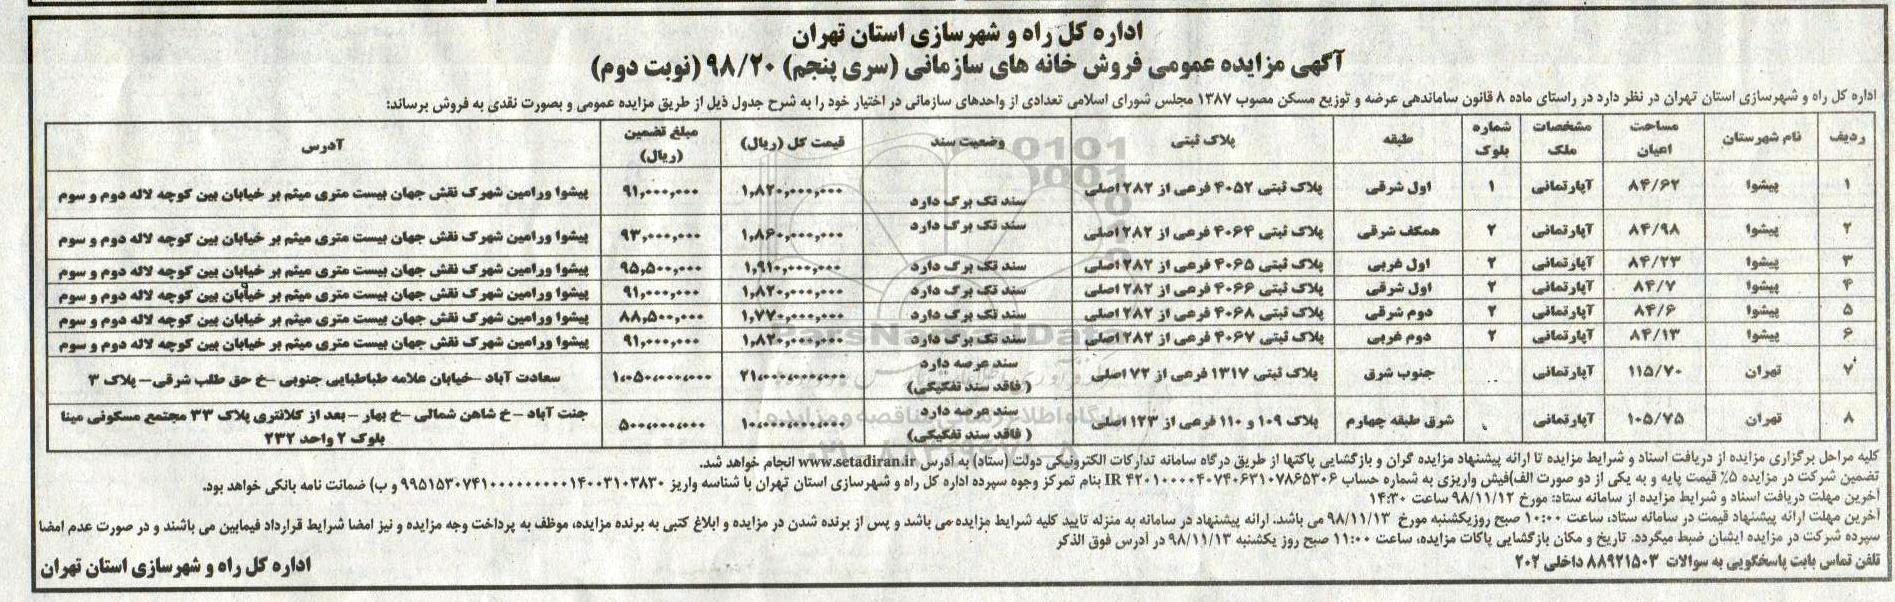 اداره کل راه و شهرسازی استان تهران
آگهی مزایده عمومی فروش خانه های سازمانی (سری پنجم) ۹۸/۲۰ (نوبت دوم)
اداره کل راه و شهرسازی استان تهران در نظر دارد در راستای ماده ۸ قانون ساماندهی عرضه و توزیع مسکن مصوب ۱۳۸۷ مجلس شورای اسلامی تعدادی از واحدهای سازمانی در اختیار خود را به شرح جدول ذیل از طریق مزایده عمومی و بصورت نقدی به فروش برساند:
ردیف نام شهرستان مساحت اعیان مشخصات ملک شماره بلوک طبقه پلاک ثبتی وضعیت سند قیمت کل (ریال) مبلغ تضمین (ریال) آدرس
۱ پیشوا ۸۴/۶۲ آپارتمانی ۱ اول شرقی پلاک ثبتی ۴۰۵۲ فرعی از ۲۸۲ اصلی سند تک برگ دارد ۱,۸۲۰,۰۰۰,۰۰۰ ۹۱,۰۰۰,۰۰۰ پیشوا ورامین شهرک نقش جهان بیست متری میثم بر خیابان بین کوچه لاله دوم و سوم
۲ پیشوا ۸۴/۹۸ آپارتمانی ۲ همکف شرقی پلاک ثبتی ۴۰۶۴ فرعی از ۲۸۲ اصلی سند تک برگ دارد ۱,۸۶۰,۰۰۰,۰۰۰ ۹۳,۰۰۰,۰۰۰ پیشوا ورامین شهرک نقش جهان بیست متری میثم بر خیابان بین کوچه لاله دوم و سوم
۳ پیشوا ۸۴/۲۳ آپارتمانی ۲ اول غربی پلاک ثبتی ۴۰۶۵ فرعی از ۲۸۲ اصلی سند تک برگ دارد ۱,۹۱۰,۰۰۰,۰۰۰ ۹۵,۵۰۰,۰۰۰ پیشوا ورامین شهرک نقش جهان بیست متری میثم بر خیابان بین کوچه لاله دوم و سوم
۴ پیشوا ۸۴/۷ آپارتمانی ۲ اول شرقی پلاک ثبتی ۴۰۶۶ فرعی از ۲۸۲ اصلی سند تک برگ دارد ۱,۸۲۰,۰۰۰,۰۰۰ ۹۱,۰۰۰,۰۰۰ پیشوا ورامین شهرک نقش جهان بیست متری میثم بر خیابان بین کوچه لاله دوم و سوم
۵ پیشوا ۸۴/۶ آپارتمانی ۲ دوم شرقی پلاک ثبتی ۴۰۶۸ فرعی از ۲۸۲ اصلی سند تک برگ دارد ۱,۷۷۰,۰۰۰,۰۰۰ ۸۸,۵۰۰,۰۰۰ پیشوا ورامین شهرک نقش جهان بیست متری میثم بر خیابان بین کوچه لاله دوم و سوم
۶ پیشوا ۸۴/۱۳ آپارتمانی ۲ دوم غربی پلاک ثبتی ۴۰۶۷ فرعی از ۲۸۲ اصلی سند تک برگ دارد ۱,۸۲۰,۰۰۰,۰۰۰ ۹۱,۰۰۰,۰۰۰ پیشوا ورامین شهرک نقش جهان بیست متری میثم بر خیابان بین کوچه لاله دوم و سوم
۷ تهران ۱۱۵/۷۰ آپارتمانی جنوب شرق پلاک ثبتی ۱۳۱۷ فرعی از ۷۲ اصلی سند عرصه دارد (فاقد سند تفکیکی) ۲۱,۰۰۰,۰۰۰,۰۰۰ ۱,۰۵۰,۰۰۰,۰۰۰ سعادت آباد -خیابان علامه طباطبایی جنوبی -خ حق طلب شرقی- پلاک ۳
۸ تهران ۱۰۵/۷۵ آپارتمانی شرق طبقه چهارم پلاک ۱۰۹ و ۱۱۰ فرعی از ۱۲۳ اصلی سند عرصه دارد (فاقد سند تفکیکی) ۱۰,۰۰۰,۰۰۰,۰۰۰ ۵۰۰,۰۰۰,۰۰۰ جنت آباد -خ شاهن شمالی -خ بهار - بعد از کلانتری پلاک ۳۳ مجتمع مسکونی مینا بلوک ۲ واحد ۲۳۲
کلیه مراحل برگزاری مزایده از دریافت اسناد و شرایط مزایده تا ارائه پیشنهاد مزایده گران و بازگشایی پاکتها از طریق درگاه سامانه تدارکات الکترونیکی دولت (ستاد) به آدرس www.setadiran.ir انجام خواهد شد.
تضمین شرکت در مزایده ۵٪ قیمت پایه و به یکی از دو صورت الف)فیش واریزی به شماره حساب IR ۴۲۰۱۰۰۰۰۴۰۷۴۰۶۳۱۰۷۸۶۵۳۰۶ بنام تمرکز وجوه سپرده اداره کل راه و شهرسازی استان تهران با شناسه واریز ۹۹۵۱۵۳۰۷۴۱۰۰۰۰۰۰۰۰۰۰۱۴۰۰۳۱۰۳۸۳۰ و ب) ضمانت نامه بانکی خواهد بود.
آخرین مهلت دریافت اسناد و شرایط مزایده از سامانه ستاد: مورخ ۹۸/۱۱/۱۲ ساعت ۱۴:۳۰
آخرین مهلت ارائه پیشنهاد قیمت در سامانه ستاد، ساعت ۱۰:۰۰ صبح روزیکشنبه مورخ ۹۸/۱۱/۱۳ می باشد. ارائه پیشنهاد در سامانه به منزله تایید کلیه شرایط مزایده می باشد و پس از برنده شدن در مزایده و ابلاغ کتبی به برنده مزایده، موظف به پرداخت وجه مزایده و نیز امضا شرایط قرارداد فیمابین می باشند و در صورت عدم امضا
سپرده شرکت در مزایده ایشان ضبط میگردد. تاریخ و مکان بازگشایی پاکات مزایده، ساعت ۱۱:۰۰ صبح روز یکشنبه ۹۸/۱۱/۱۳ در آدرس فوق الذکر
تلفن تماس بابت پاسخگویی به سوالات ۸۸۹۲۱۵۰۳ داخلی ۲۰۲
اداره کل راه و شهرسازی استان تهران
ParsNamadData